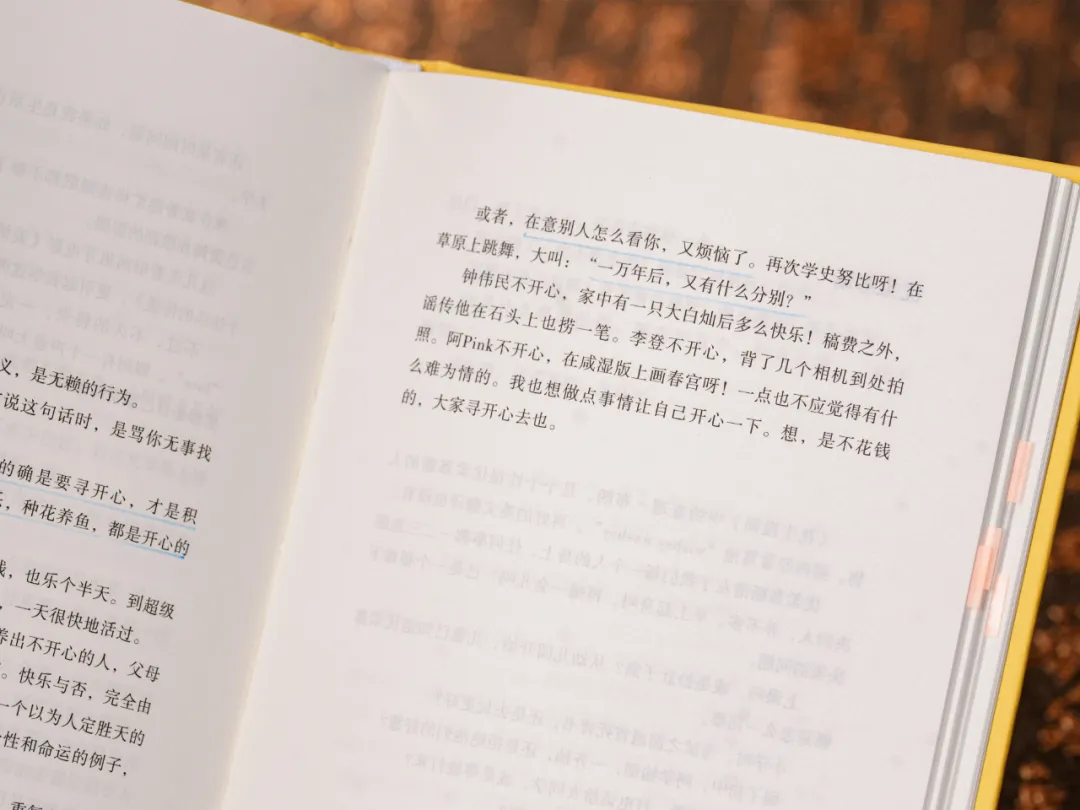 义，是无赖的行为。
说这句话时，是骂你无事找
的确是要寻开心，才是积
，种花养鱼，都是开心的
，也乐个半天。到超级
，一天很快地活过。
养出不开心的人，父母
。快乐与否，完全由
一个以为人定胜天的
性和命运的例子，
或者，在意别人怎么看你，又烦恼了。再次学史努比呀！在
草原上跳舞，大叫：“一万年后，又有什么分别？”
钟伟民不开心，家中有一只大白灿后多么快乐！稿费之外，
谣传他在石头上也捞一笔。李登不开心，背了几个相机到处拍
照。阿Pink不开心，在咸湿版上画春宫呀！一点也不应觉得有什
么难为情的。我也想做点事情让自己开心一下。想，是不花钱
的，大家寻开心去也。